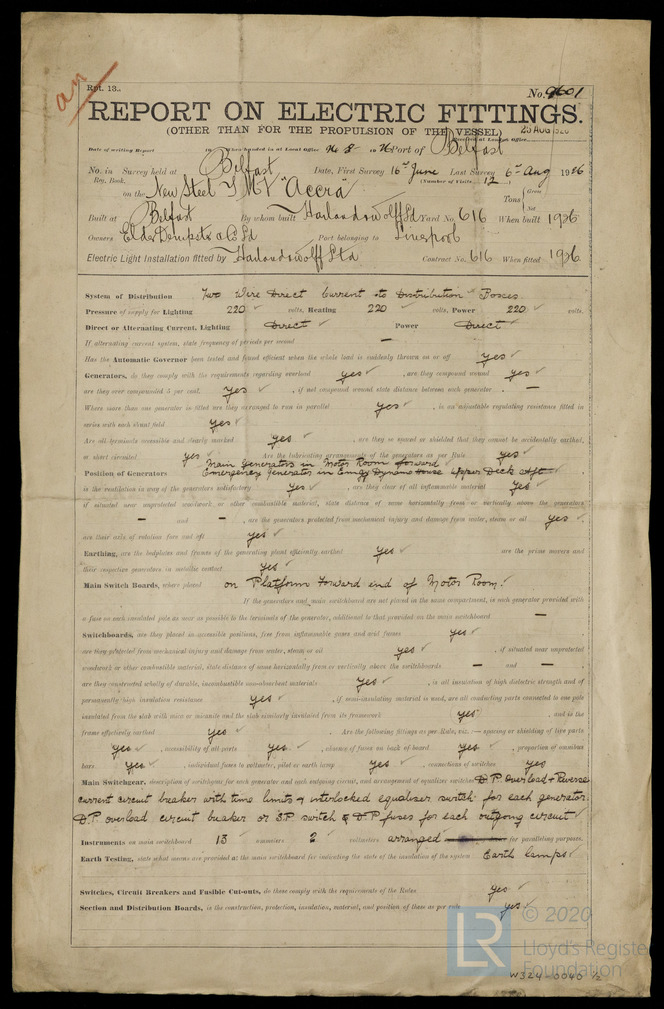 Rpt. 13.
No. 9601
REPORT ON ELECTRIC FITTINGS.
(OTHER THAN FOR THE PROPULSION OF THE VESSEL)
25 AUG
Date of writing Report When handed in at Local Office 8 Port of Belfast
No. in Survey held at Belfast Date, First Survey 16th June Last Survey 6th Aug 1926
Reg. Book. (Number of Visits 12)
on the New Steel MV "Accra" Tons Gross Net
Built at Belfast By whom built Harland & Wolff Ltd Yard No. 616 When built 1926
Owners Elder Dempster & Co Ld Port belonging to Liverpool
Electric Light Installation fitted by Harland & Wolff Ltd Contract No. 616 When fitted 1926
System of Distribution Two Wire Direct Current to Distribution Boxes
Pressure of supply for Lighting 220 volts, Heating 220 volts, Power 220 volts.
Direct or Alternating Current, Lighting Direct Power Direct
If alternating current system, state frequency of periods per second —
Has the Automatic Governor been tested and found efficient when the whole load is suddenly thrown on or off yes
Generators, do they comply with the requirements regarding overload yes, are they compound wound yes
are they over compounded 5 per cent. yes, if not compound wound state distance between each generator —
Where more than one generator is fitted are they arranged to run in parallel yes, is an adjustable regulating resistance fitted in
series with each shunt field yes
Are all terminals accessible and clearly marked yes, are they so spaced or shielded that they cannot be accidentally earthed,
or short circuited yes Are the lubricating arrangements of the generators as per Rule yes
Position of Generators Main Generators in Motor Room forward
Emergency Generator in Emgy Dynamo house Upper Deck aft
is the ventilation in way of the generators satisfactory yes, are they clear of all inflammable material yes
if situated near unprotected woodwork or other combustible material, state distance of same horizontally from or vertically above the generators
— and —, are the generators protected from mechanical injury and damage from water, steam or oil yes
are their axis of rotation fore and aft yes
Earthing, are the bedplates and frames of the generating plant efficiently earthed yes are the prime movers and
their respective generators in metallic contact yes
Main Switch Boards, where placed on Platform forward end of Motor Room.
If the generators and main switchboard are not placed in the same compartment, is each generator provided with
a fuse on each insulated pole as near as possible to the terminals of the generator, additional to that provided on the main switchboard —
Switchboards, are they placed in accessible positions, free from inflammable gases and acid fumes yes
are they protected from mechanical injury and damage from water, steam or oil yes, if situated near unprotected
woodwork or other combustible material, state distance of same horizontally from or vertically above the switchboards — and —
are they constructed wholly of durable, incombustible non-absorbent materials yes, is all insulation of high dielectric strength and of
permanently high insulation resistance yes, if semi-insulating material is used, are all conducting parts connected to one pole
insulated from the slab with mica or micanite and the slab similarly insulated from its framework yes, and is the
frame effectively earthed yes. Are the following fittings as per Rule, viz.:— spacing or shielding of live parts
yes, accessibility of all parts yes, absence of fuses on back of board yes, proportion of omnibus
bars yes, individual fuses to voltmeter, pilot or earth lamp yes, connections of switches yes
Main Switchgear, description of switchgear for each generator and each outgoing circuit, and arrangement of equalizer switches D.P. overload & Reverse
current circuit breaker with time limits & interlocked equalizer switch for each generator.
D.P. overload circuit breaker or S.P. switch & D.P. fuses for each outgoing circuit
Instruments on main switchboard 13 ammeters 2 voltmeters arranged for paralleling purposes.
Earth Testing, state what means are provided at the main switchboard for indicating the state of the insulation of the system Earth lamps
Switches, Circuit Breakers and Fusible Cut-outs, do these comply with the requirements of the Rules yes
Section and Distribution Boards, is the construction, protection, insulation, material, and position of these as per rule yes
LR © 2020
Lloyd's Register
Foundation
W324-0040 ½